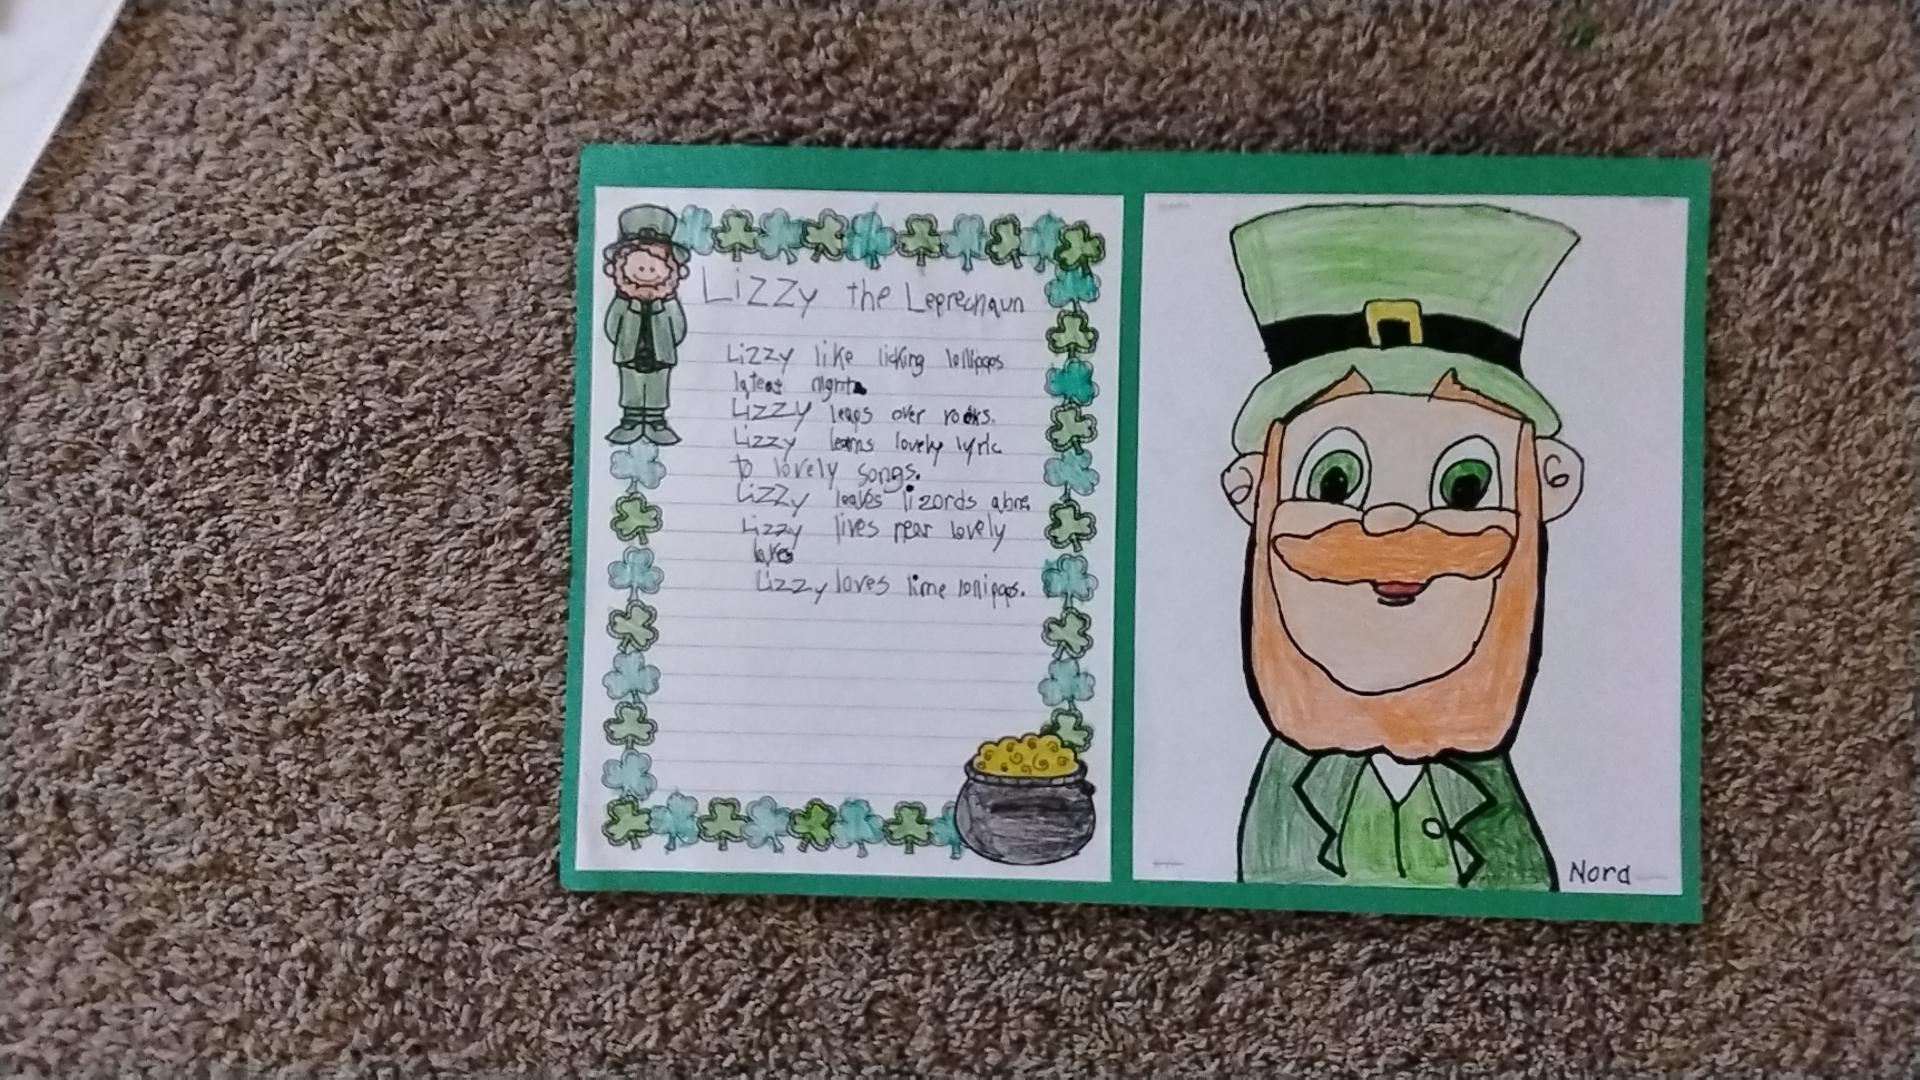 Lizzy the Leprechaun
Lizzy like licking lollipops
lateat night.
Lizzy leaps over rocks.
Lizzy learns lovely lyric
to lovely songs.
Lizzy leaves lizords
Lizzy lives near lovely
lakes
Lizzy loves lime lollipops.
Nora